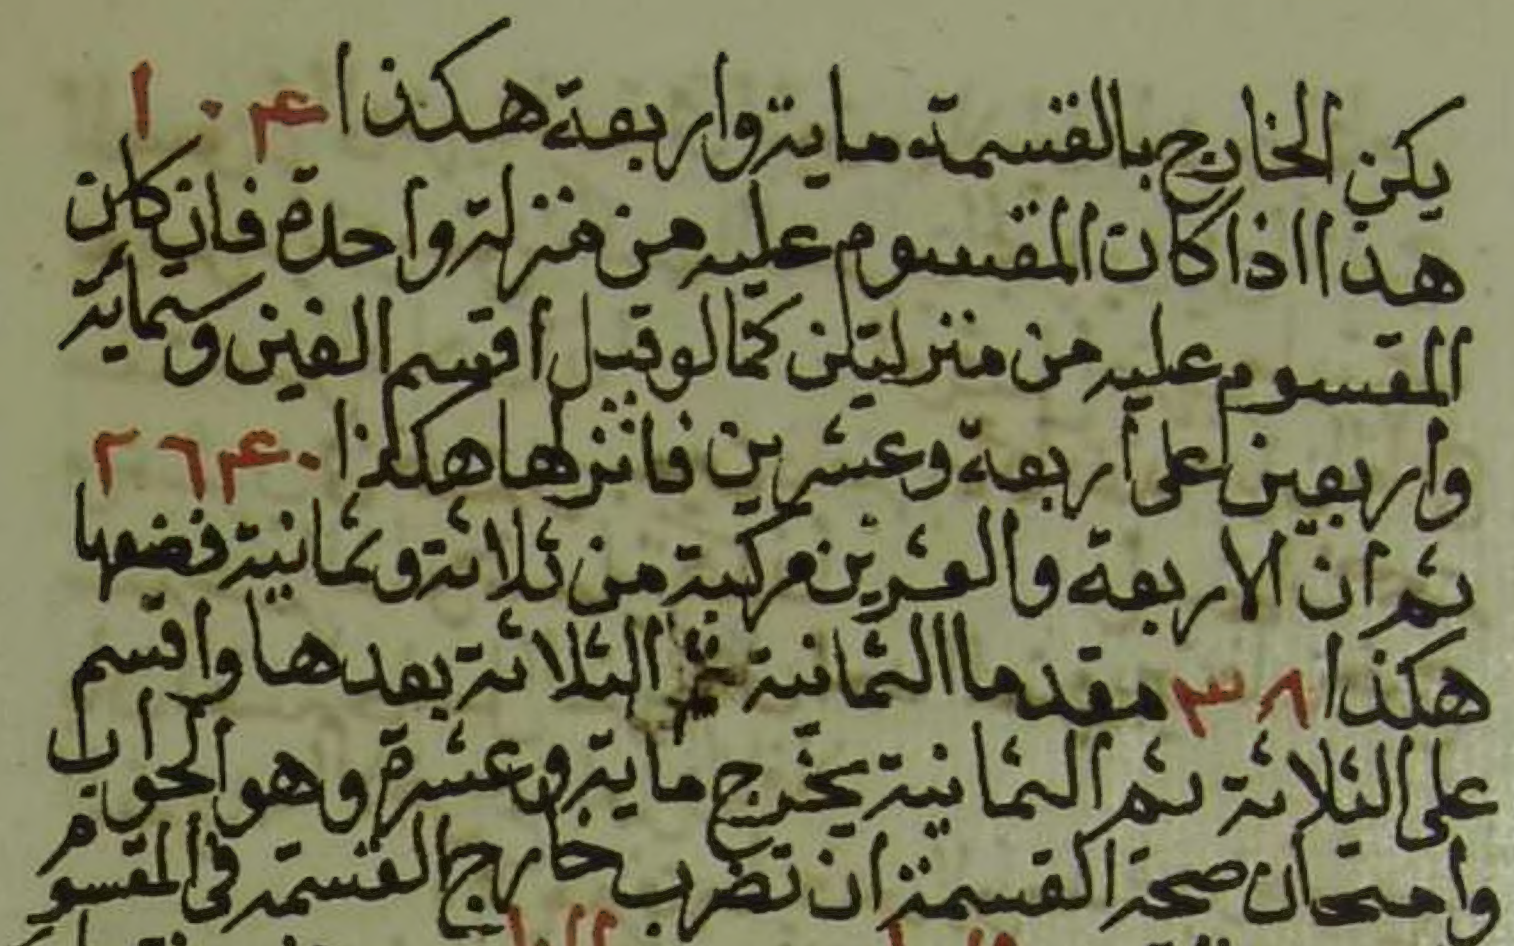 يكن الخارج بالقسمة ماية واربعة هكذا ١٠۴
هذا اذا كان المقسوم عليه من منزلة واحدة فان كان
المقسوم عليه من منزلتين كما لو قيل اقسم الفين وستماية
واربعين على اربعة وعشرين فانزلها هكذا ٢٦۴٠
ثم ان الاربعة والعشرين مركبة من ثلاثة وثمانية فضعها
هكذا ٣٨ مقدما الثمانية ثم الثلاثة بعدها واقسم
على الثلاثة ثم الثمانية يخرج ماية وعشرة وهو الجواب
وامتحان صحة القسمة ان تضرب خارج القسمة في المقسوم